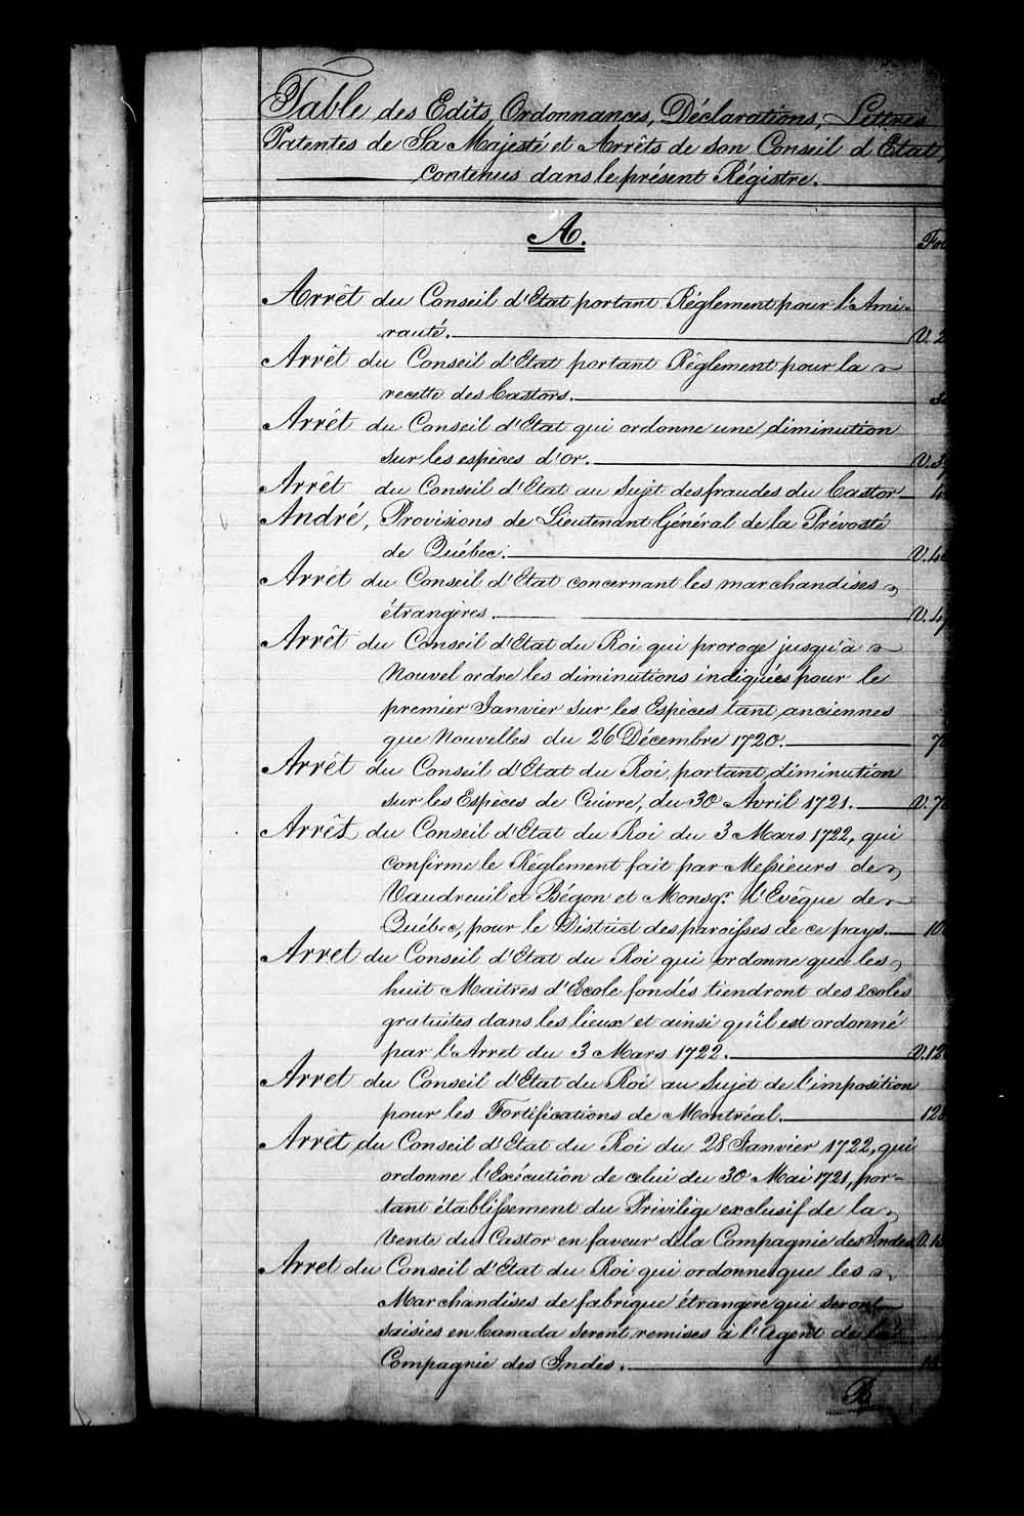 Table des Edits, Ordonnances, Déclarations, Lettres
Patentes de Sa Majesté et Arrêts de son Conseil d'Etat,
contenus dans le présent Régistre.
A.
Arrêt du Conseil d'Etat portant Réglement pour l'Ami-
rauté. V. 2
Arrêt du Conseil d'Etat portant Réglement pour la
recette des Castors.
Arrêt du Conseil d'Etat qui ordonne une diminution
sur les espèces d'or. V. 3
Arrêt du Conseil d'Etat au Sujet des fraudes du Castor 4
André, Provisions de Lieutenant Général de la Prévosté
de Québec. V. 4
Arrêt du Conseil d'Etat concernant les marchandises
étrangères. V. 4
Arrêt du Conseil d'Etat du Roi qui proroge jusqu'à
Nouvel ordre les diminutions indiquées pour le
premier Janvier sur les Espèces tant anciennes
que Nouvelles du 26 Décembre 1720. 7
Arrêt du Conseil d'Etat du Roi, portant diminution
sur les Espèces de Cuivre, du 30 Avril 1721. V. 7
Arrêt du Conseil d'Etat du Roi du 3 Mars 1722, qui
confirme le Règlement fait par Messieurs de
Vaudreuil et Bégon et Monsgr. l'Evêque de
Québec, pour le District des paroisses de ce pays. 10
Arret du Conseil d'Etat du Roi qui ordonne que les
huit Maitres d'Ecole fondés tiendront des Ecoles
gratuites dans les lieux et ainsi qu'il est ordonné
par l'Arret du 3 Mars 1722. V. 12
Arret du Conseil d'Etat du Roi au Sujet de l'imposition
pour les Fortifications de Montréal. 12
Arrêt du Conseil d'Etat du Roi du 28 Janvier 1722, qui
ordonne l'Exécution de celui du 30 Mai 1721, por-
tant établissement du Privilège exclusif de la
Vente du Castor en faveur de la Compagnie des Indes V. 1
Arret du Conseil d'Etat du Roi qui ordonne que les
Marchandises de fabrique étrangère qui seront
saisies en Canada seront remises à l'Agent de la
Compagnie des Indes.
B